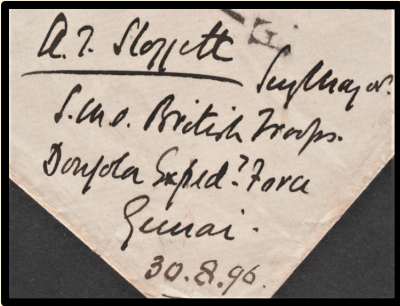 A.T. Sloggett
Surg Major.
S.M.O. British Troops.
Dongola Exped? Force
Gemai.
30.8.96.